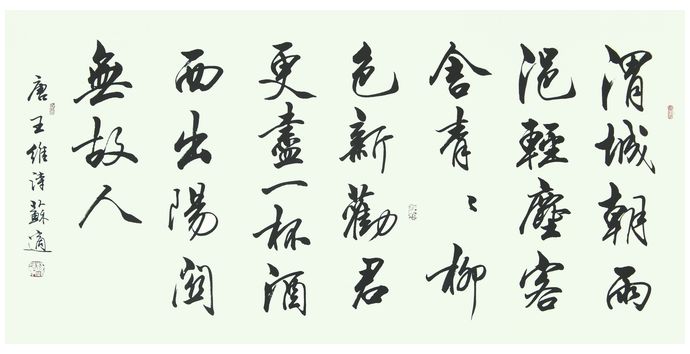 渭城朝雨
浥輕塵客
舍青〻柳
色新勸君
更盡一杯酒
西出陽關
無故人
唐王維詩蘇適